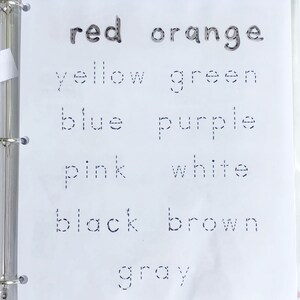 red orange
yellow green
blue purple
pink white
black brown
gray